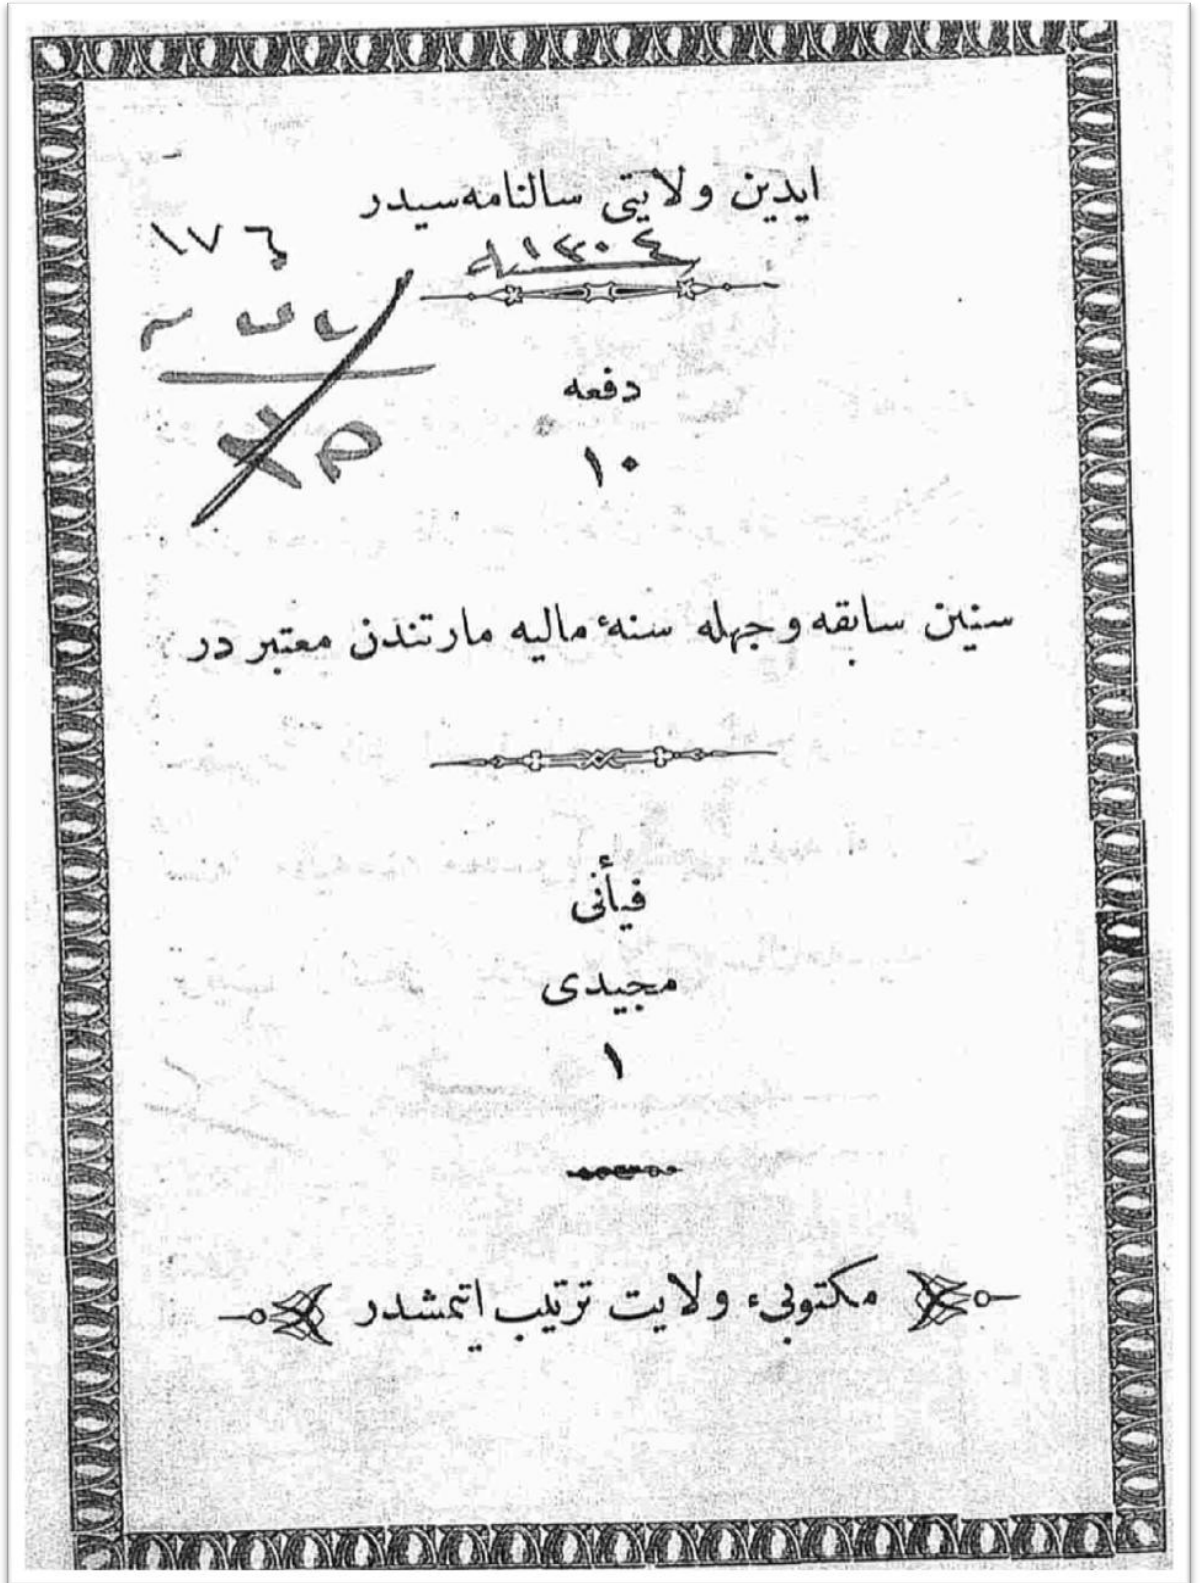 ایدین ولایتی سالنامه‌سیدر
١٣٠٤
١٧٦
دفعه
١٠
سنین سابقه وجهله سنهٔ مالیه مارتندن معتبر در
فیأتی
مجیدی
١
مکتوبیء ولایت ترتیب اتمشدر